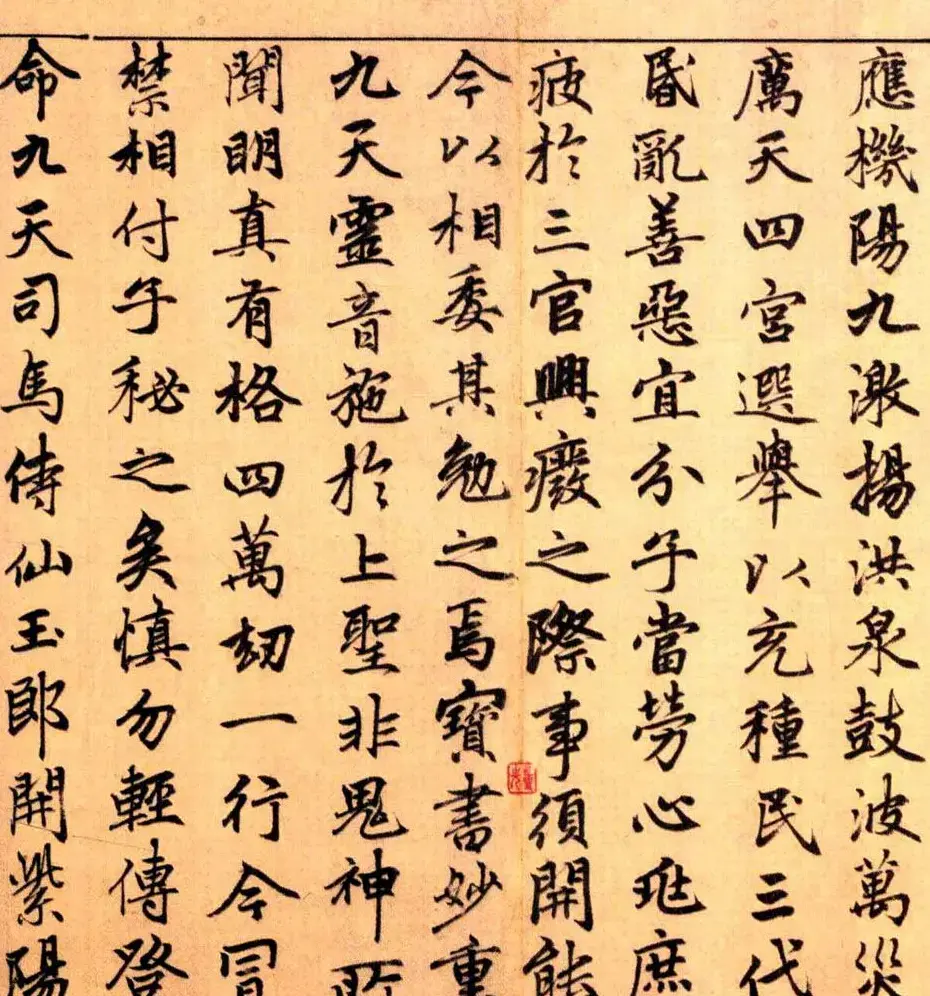 應機陽九激揚洪泉鼓波萬災
厲天四宮選舉以充種民三代
昏亂善惡宜分子當勞心兆庶
疲於三官興癈之際事須開能
今以相委其勉之焉寶書妙重
九天靈音施於上聖非鬼神所
聞明真有格四萬劫一行今冒
禁相付子秘之矣慎勿輕傳登
命九天司馬侍仙玉郎開紫陽